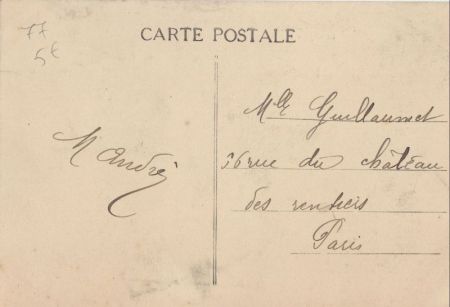 77
5€
CARTE POSTALE
Mlle Guillaumet
M André
36 rue du château
des rentiers
Paris